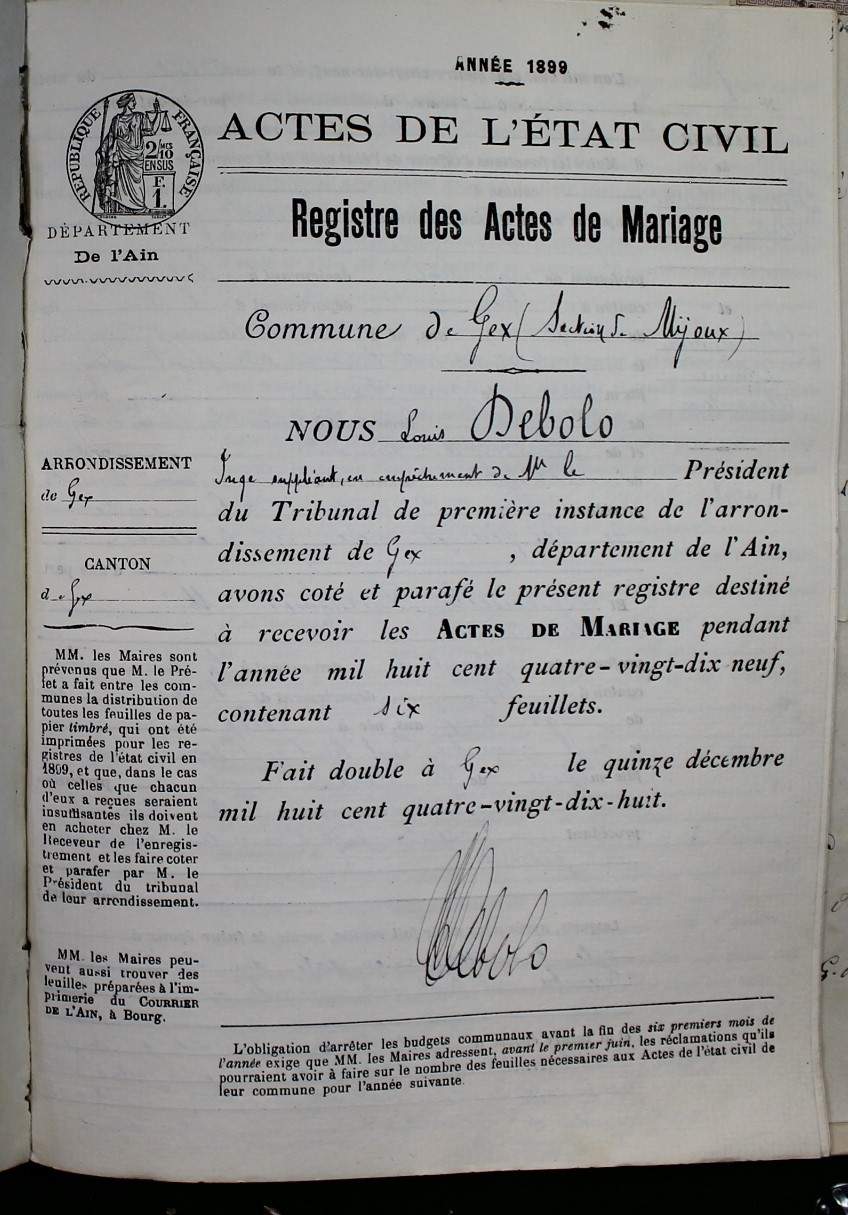 ANNÉE 1899
RÉPUBLIQUE FRANÇAISE
2/10 MES
EN SUS
F.
1.
DÉPARTEMENT
De l'Ain
ACTES DE L'ÉTAT CIVIL
Registre des Actes de Mariage
Commune de Gex (Section de Mijoux)
NOUS Louis Debolo
Juge suppléant, en empêchement de Mr le Président
du Tribunal de première instance de l'arron-
dissement de Gex , département de l'Ain,
avons coté et parafé le présent registre destiné
à recevoir les ACTES DE MARIAGE pendant
l'année mil huit cent quatre-vingt-dix neuf,
contenant six feuillets.
Fait double à Gex le quinze décembre
mil huit cent quatre-vingt-dix-huit.
Debolo
ARRONDISSEMENT
de Gex
CANTON
de Gex
MM. les Maires sont
prévenus que M. le Pré-
fet a fait entre les com-
munes la distribution de
toutes les feuilles de pa-
pier timbré, qui ont été
imprimées pour les re-
gistres de l'état civil en
1899, et que, dans le cas
où celles que chacun
d'eux a reçues seraient
insuffisantes ils doivent
en acheter chez M. le
Receveur de l'enregis-
trement et les faire coter
et parafer par M. le
Président du tribunal
de leur arrondissement.
MM. les Maires peu-
vent aussi trouver des
feuilles préparées à l'im-
primerie du COURRIER
DE L'AIN, à Bourg.
L'obligation d'arrêter les budgets communaux avant la fin des six premiers mois de
l'année exige que MM. les Maires adressent, avant le premier juin, les réclamations qu'ils
pourraient avoir à faire sur le nombre des feuilles nécessaires aux Actes de l'état civil de
leur commune pour l'année suivante.